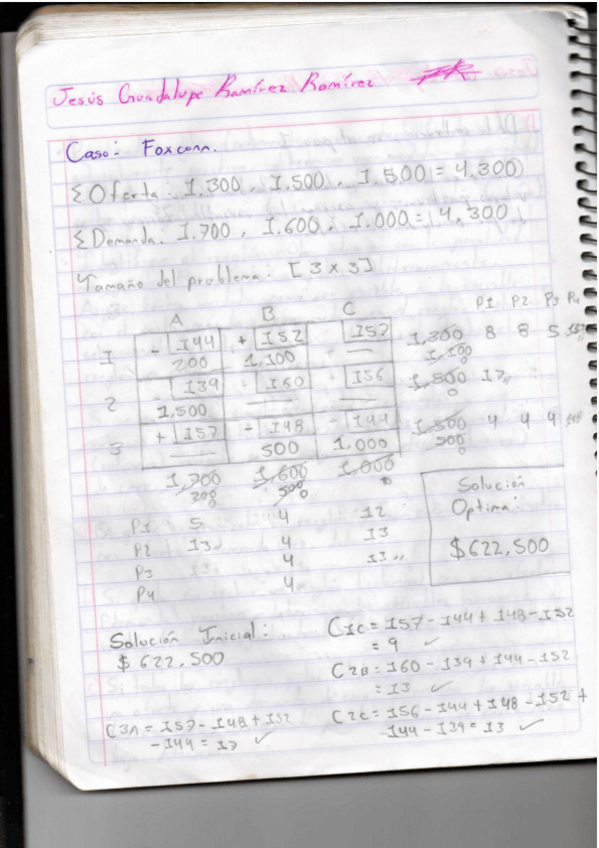 Jesús Guadalupe Ramírez Ramírez
Caso: Foxconn.
Σ Oferta: 1.300, 1.500, 1.500 = 4.300
Σ Demanda: 1.700, 1.600, 1.000 = 4,300
Tamaño del problema: [3 x 3]
P1 P2 P3 P4
A B C
1 - 144 + 152 157 1,300 8 8 5
200 1,100 — 1,100
2 139 + 160 156 1,500 13,,
1,500 — — 0
3 + 157 - 148 - 144 1,500 4 4 4 148
— 500 1.000 500
0
1,700 1,600 1,000
200 500 0
0
P1 5 4 12
P2 13,, 4 13
P3 4 13,,
P4 4
Solución
Optima:
$622,500
Solución Inicial:
$ 622,500
C1C = 157 - 144 + 148 - 152
= 9 ✓
C2B = 160 - 139 + 144 - 152
= 13 ✓
C2C = 156 - 144 + 148 - 152 +
144 - 139 = 13 ✓
C3A = 157 - 148 + 152
- 144 = 17 ✓